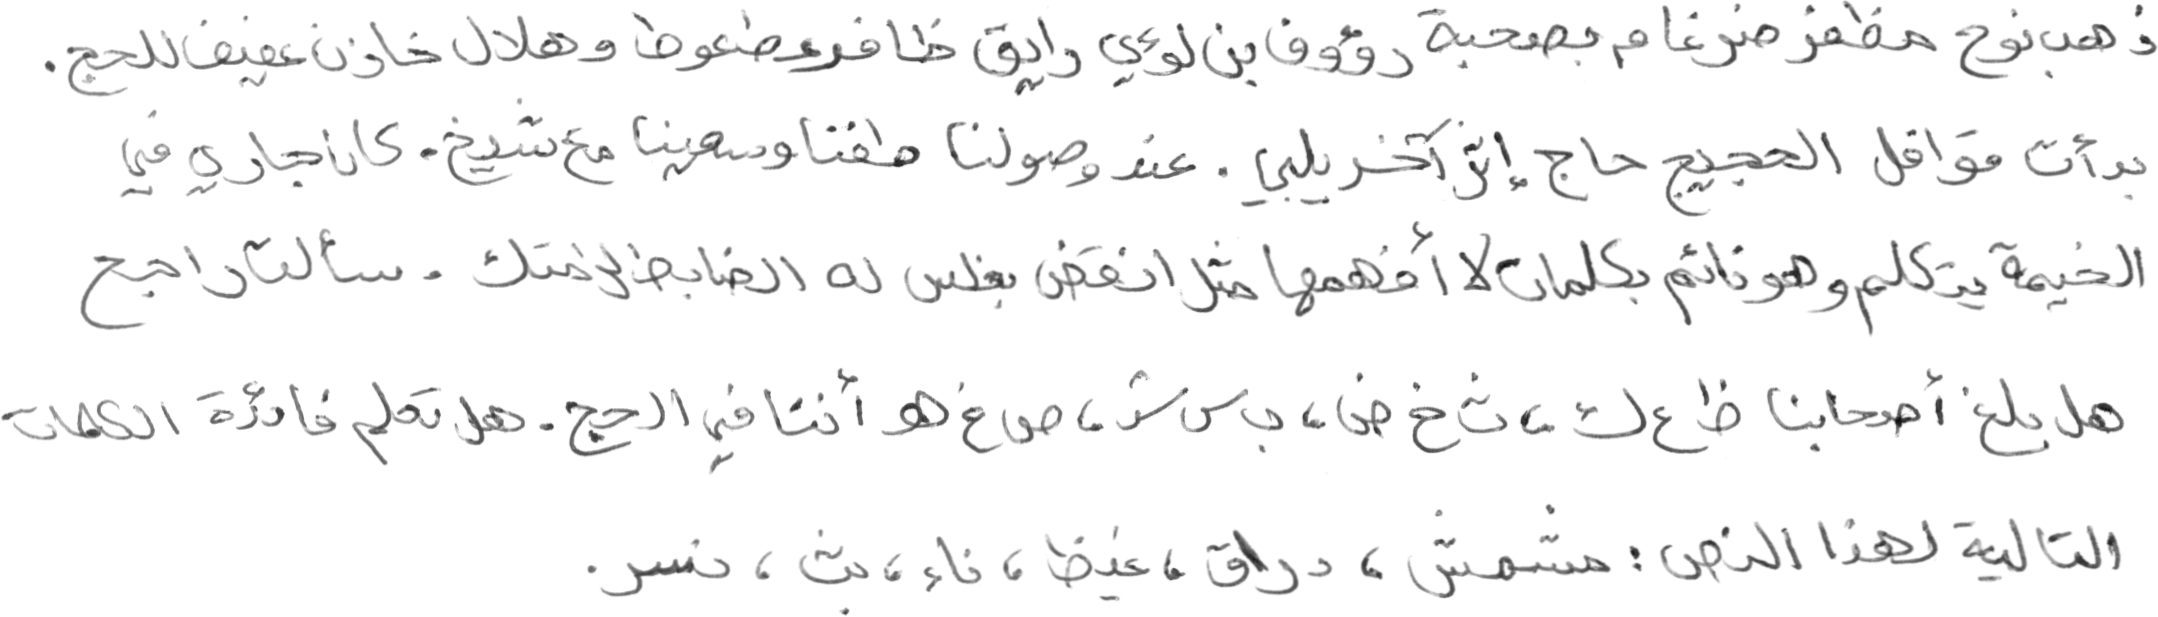 ذهب نوح مظفر ضرغام بصحبة رؤوف بن لؤي رايق ظافر عطعوط وهلال خازن عفيف للحج.
بدأت قوافل الحجيج حاج إثر آخر يلبي. عند وصولنا طفنا وسعينا مع شيخ. كان جاري في
الخيمة يتكلم وهو نائم بكلمات لا أفهمها مثل انقض بغلس له الضابط لختك. سألت راجح
هل بلغ أصحابنا ظ ع ك، ث خ ض، ب س ش، ص غ هـ أننا في الحج. هل تعلم فائدة الكلمات
التالية لهذا النص: مشمش، دراق، غيظ، ناء، بث، نسر.